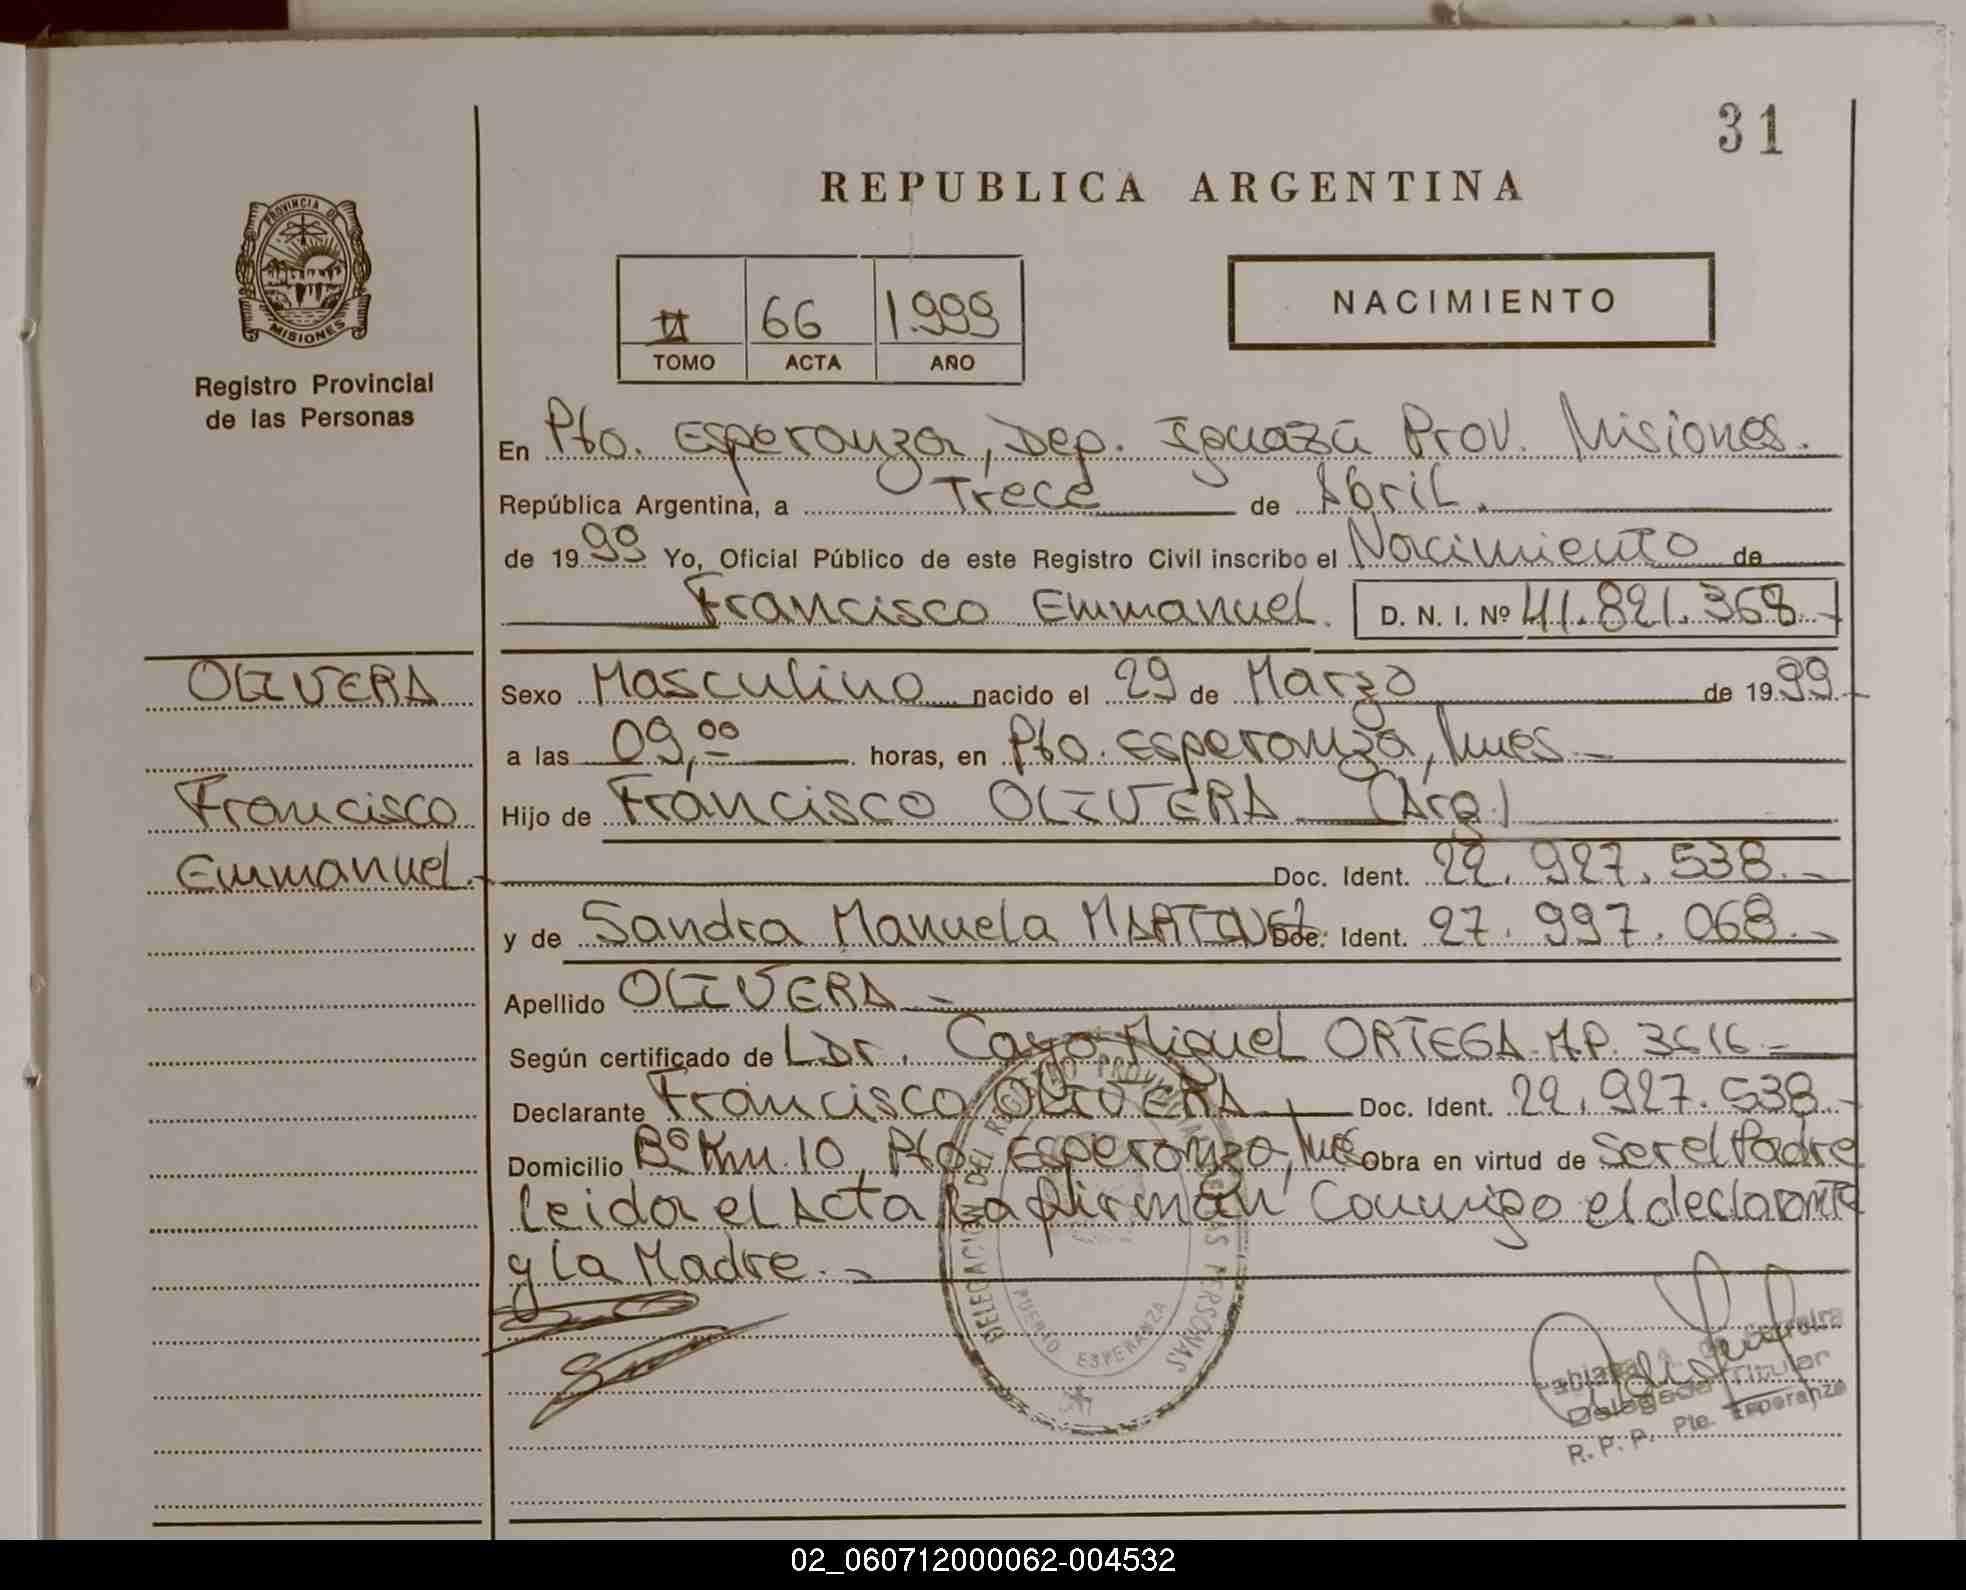 31
REPUBLICA ARGENTINA
PROVINCIA DE
MISIONES
Registro Provincial
de las Personas
II 66 1.999
TOMO ACTA AÑO
NACIMIENTO
En Pto. Esperanza, Dep. Iguazú Prov. Misiones.
República Argentina, a Trece de Abril.
de 1999 Yo, Oficial Público de este Registro Civil inscribo el Nacimiento de
Francisco Emmanuel. D. N. I. Nº 41.821.368.-
OLIVERA
Francisco
Emmanuel.-
Sexo Masculino nacido el 29 de Marzo de 1999.-
a las 09,00 horas, en Pto. Esperanza, Mnes.-
Hijo de Francisco OLIVERA (Arg.)
Doc. Ident. 22.927.538.-
y de Sandra Manuela MARTINEZ Doc. Ident. 27.997.068.-
Apellido OLIVERA.-
Según certificado de L Dr. Cayo Miguel ORTEGA M.P. 3616.-
Declarante Francisco OLIVERA Doc. Ident. 22.927.538.-
Domicilio Bº Km. 10, Pto. Esperanza, Mnes Obra en virtud de Ser el Padre
Leida el Acta La firman Conmigo el declarante
y La Madre.-
DELEGACION DEL REGISTRO PROVINCIAL DE LAS PERSONAS
PUERTO ESPERANZA
Delegada Titular
R. P. P. Pto. Esperanza
02_060712000062-004532